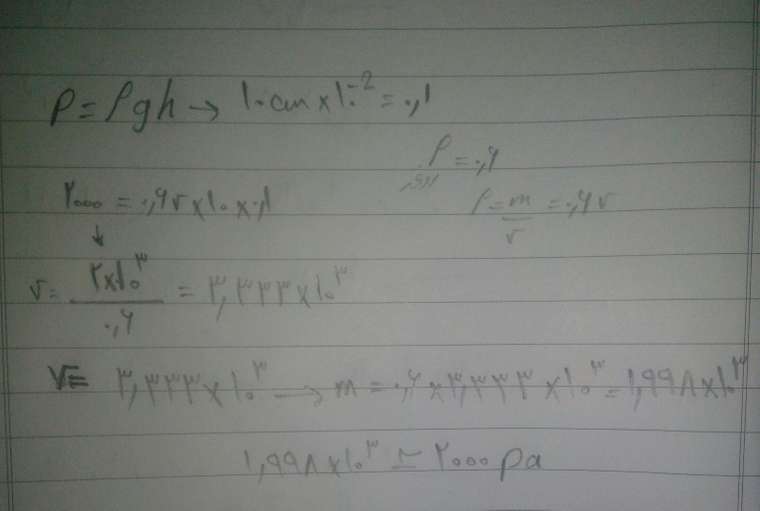 P = ρgh → ۱۰cm × ۱۰⁻² = ۰٫۱
ρ = ۰٫۶
۲۰۰۰ = ۰٫۶v × ۱۰ × ۰٫۱
ρ = m/v = ۰٫۶v
↓
v = ۲×۱۰³/۰٫۶ = ۳٫۳۳۳ × ۱۰³
V = ۳٫۳۳۳ × ۱۰³ → m = ۰٫۶ × ۳٫۳۳۳ × ۱۰³ = ۱٫۹۹۸ × ۱۰³
۱٫۹۹۸ × ۱۰³ ≃ ۲۰۰۰ pa